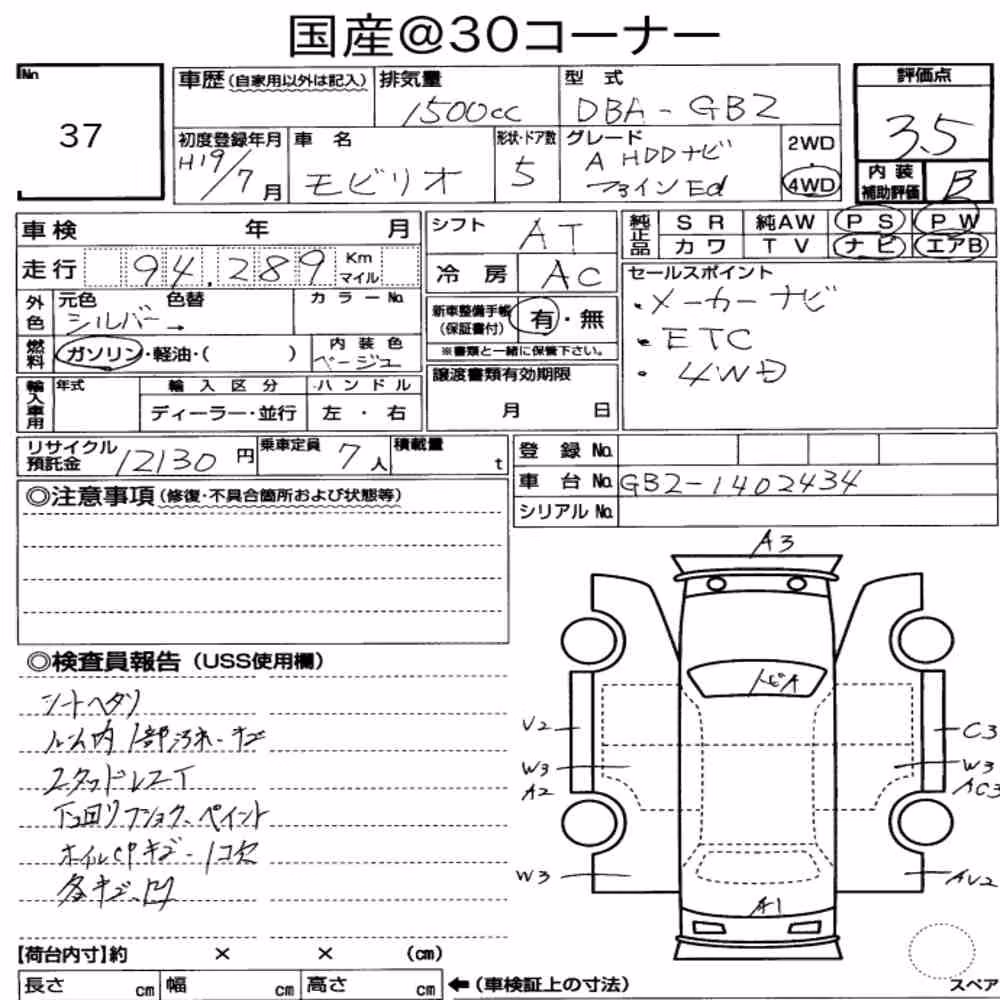 国産@30コーナー
No. 37
車歴(自家用以外は記入) 排気量 1500cc 型式 DBA-GB2
評価点 3.5
初度登録年月 H19/7月 車名 モビリオ 形状・ドア数 5 グレード A HDDナビ ファインEd 2WD・4WD
内装補助評価 B
車検 年 月
シフト AT
純正品 SR 純AW PS PW
カワ TV ナビ エアB
走行 94,289 Km マイル
冷房 AC
セールスポイント
・メーカーナビ
・ETC
・4WD
外色 元色 シルバー→ 色替 カラーNo.
新車整備手帳(保証書付) 有・無
※書類と一緒に保管下さい。
燃料 ガソリン・軽油・( ) 内装色 ベージュ
輸入車用 年式 輸入区分 ハンドル
ディーラー・並行 左・右
譲渡書類有効期限
月 日
リサイクル預託金 12130円 乗車定員 7人 積載量 t
登録No.
車台No. GB2-1402434
シリアルNo.
◎注意事項(修復・不具合箇所および状態等)
◎検査員報告(USS使用欄)
シートヘタリ
ルーム内1部汚れ・キズ
スタッドレス4T
下回りフショク、ペイント
ホイルCPキズ・1コ欠
各キズ、凹
A3
トビA
U2
C3
W3
A2
W3
AC3
W3
AU2
A1
【荷台内寸】約 × × (cm)
長さ cm 幅 cm 高さ cm ←(車検証上の寸法)
スペア